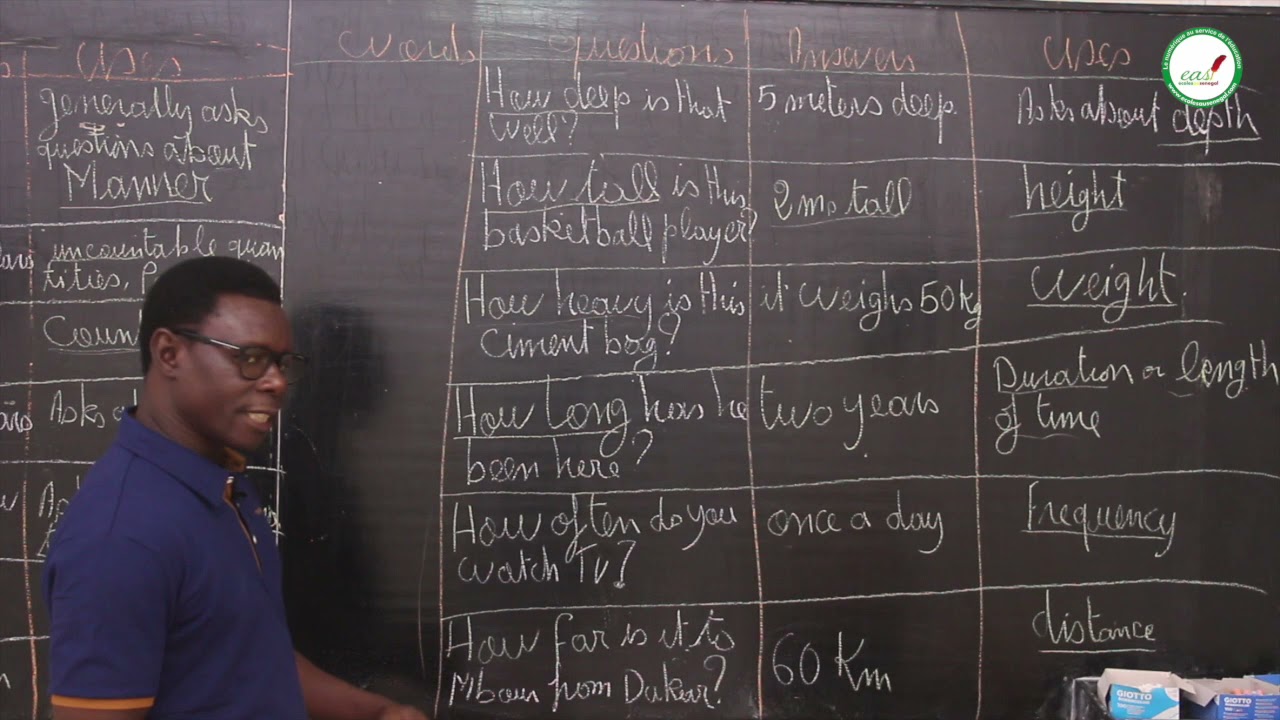 Uses
generally asks
questions about
Manner
uncountable quan
tities, P
Coun
Asks a
Words questions Answers uses
How deep is that 5 meters deep. Asks about depth
well?
How tall is this 2m tall height
basketball player?
How heavy is this it weighs 50kg weight.
ciment bag?
How long has he two years Duration or length
been here? of time
How often do you once a day Frequency
watch TV?
How far is it to 60 Km distance
Mbour from Dakar?
Le numérique au service de l'éducation
eas
ecolesausenegal.com
www.ecolesausenegal.com
GIOTTO
GIOTTO